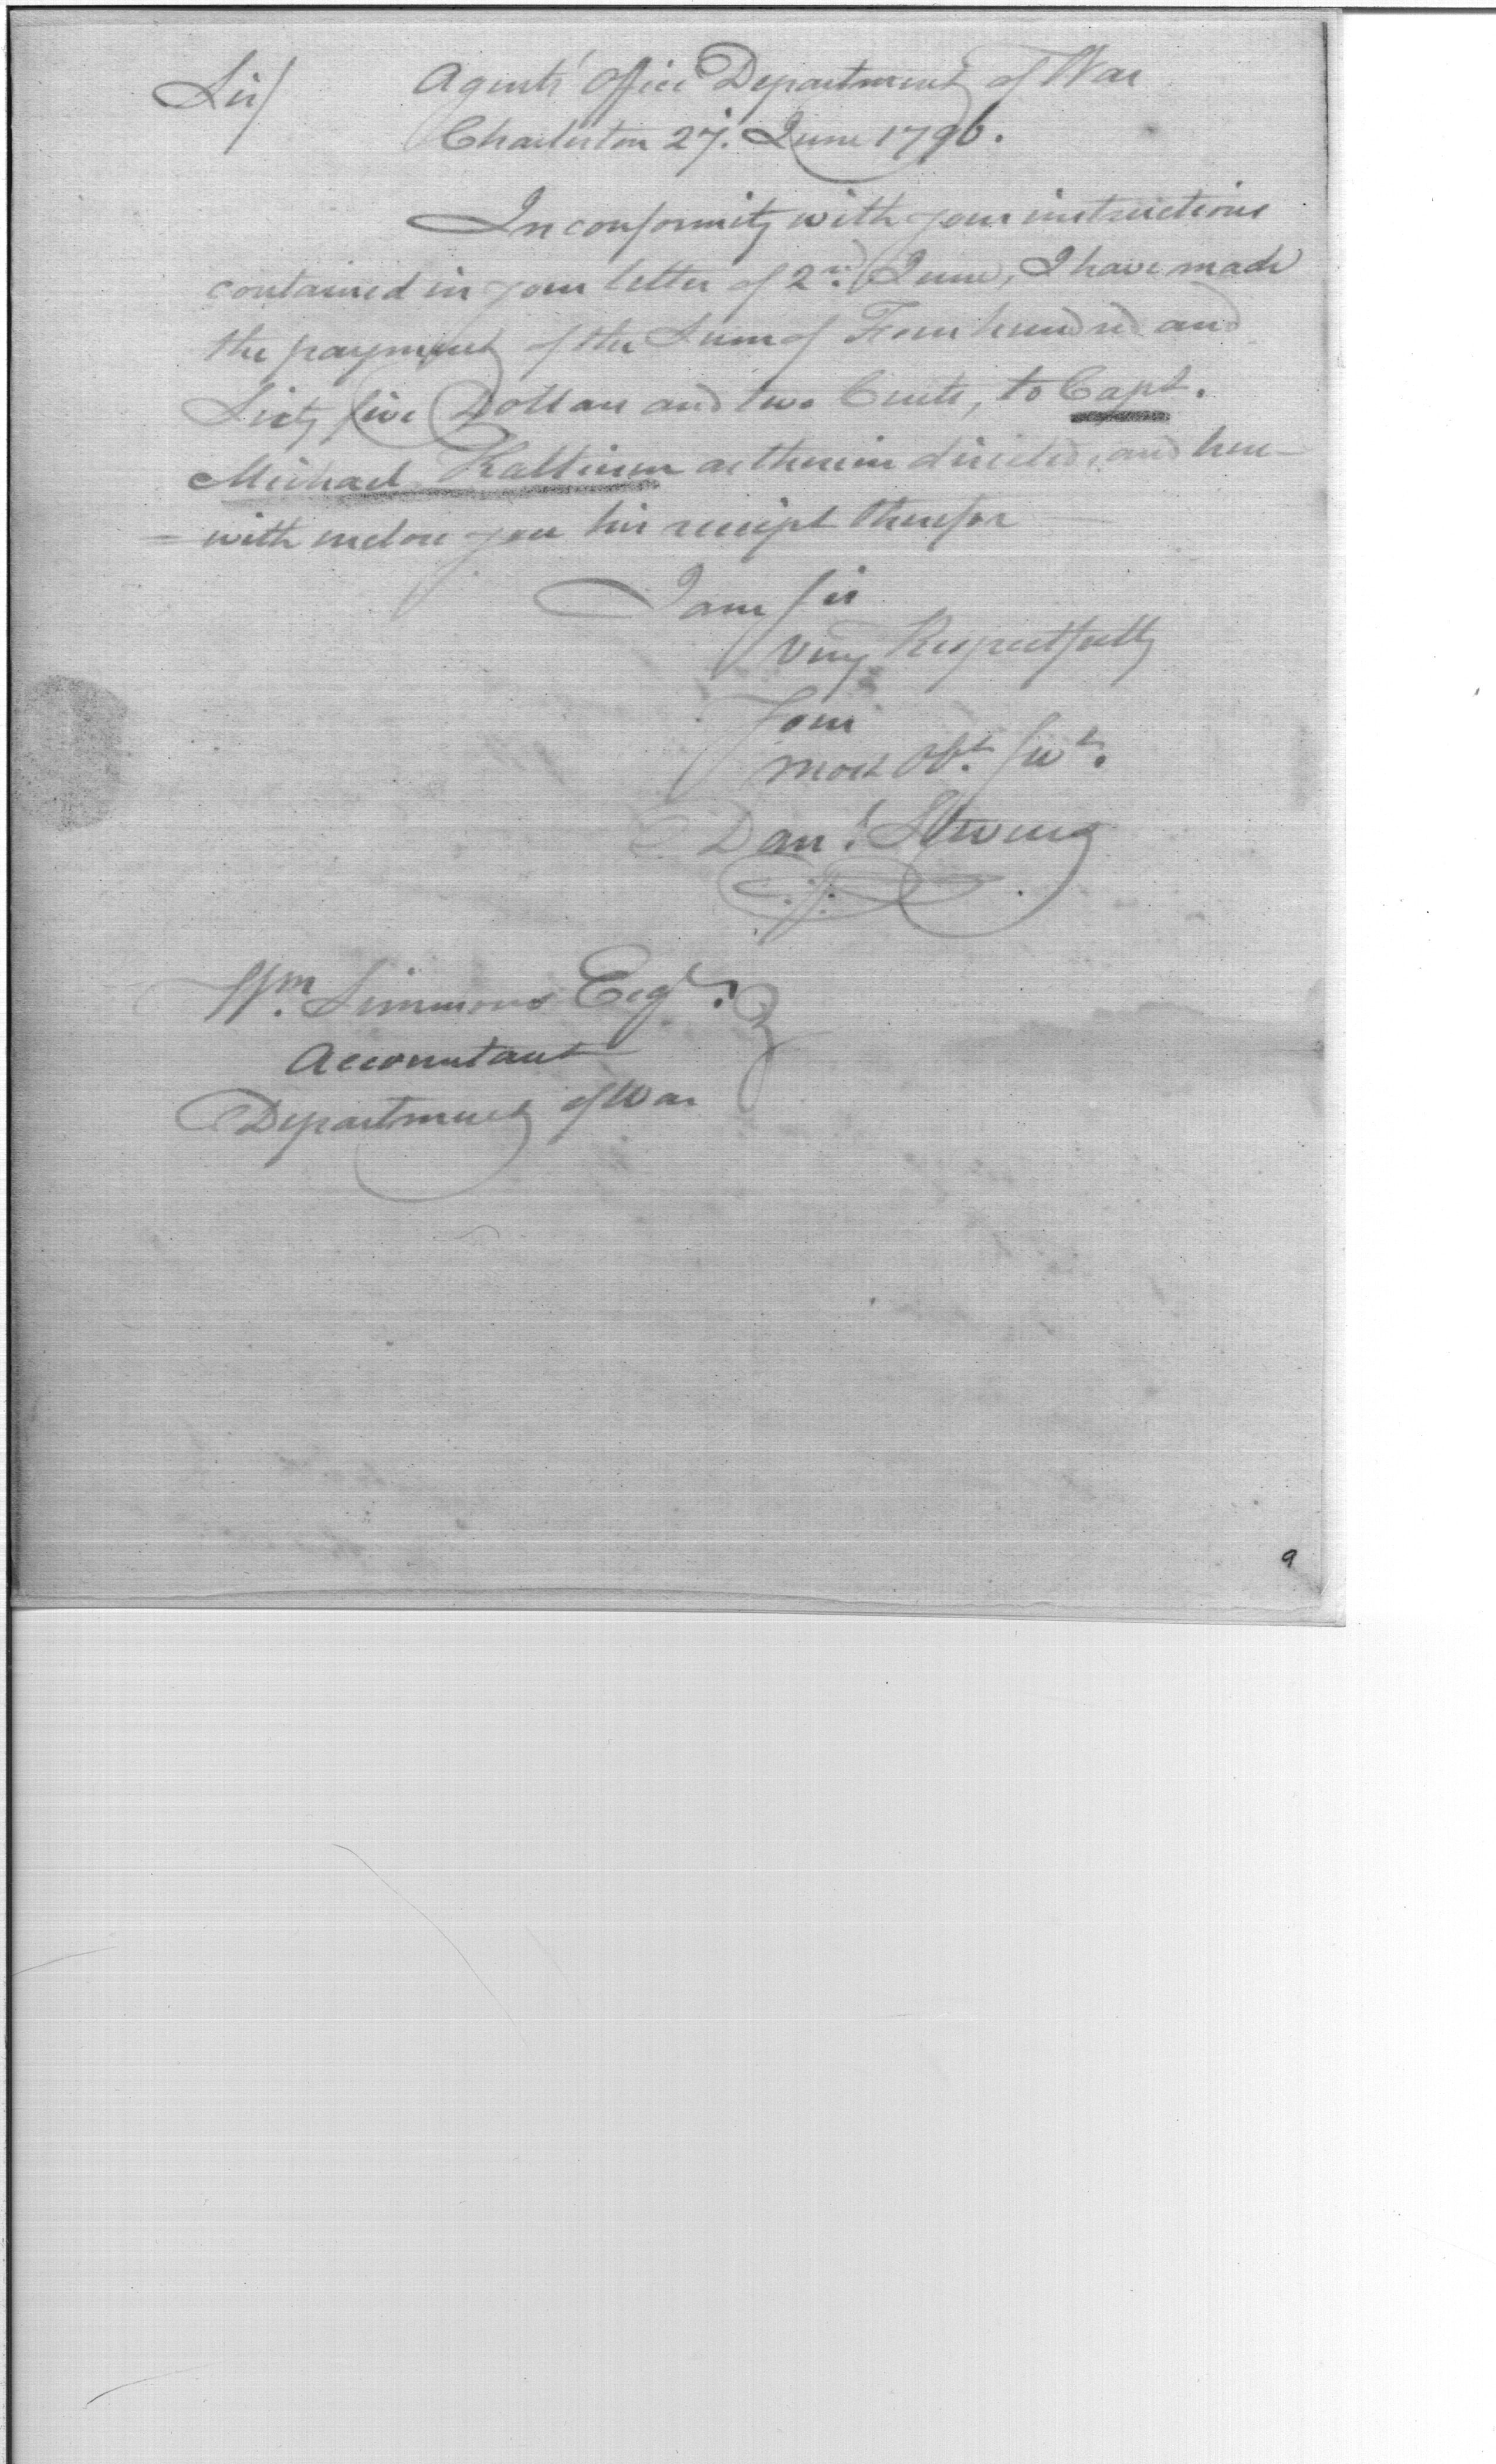 Sir/
Agents' Office Department of War
Charleston 27. June 1796.
In conformity with your instructions
contained in your letter of 2nd. June, I have made
the payment of the Sum of Four hundred and
Sixty five Dollars and two Cents, to Capt.
Michael Kalteisen as therein directed, and here-
- with enclose you his receipt therefor
I am Sir
Very Respectfully
Your
most Obt. Svt.
Danl. Stevens
Wm. Simmons Esqr.
Accountant
Department of War
9